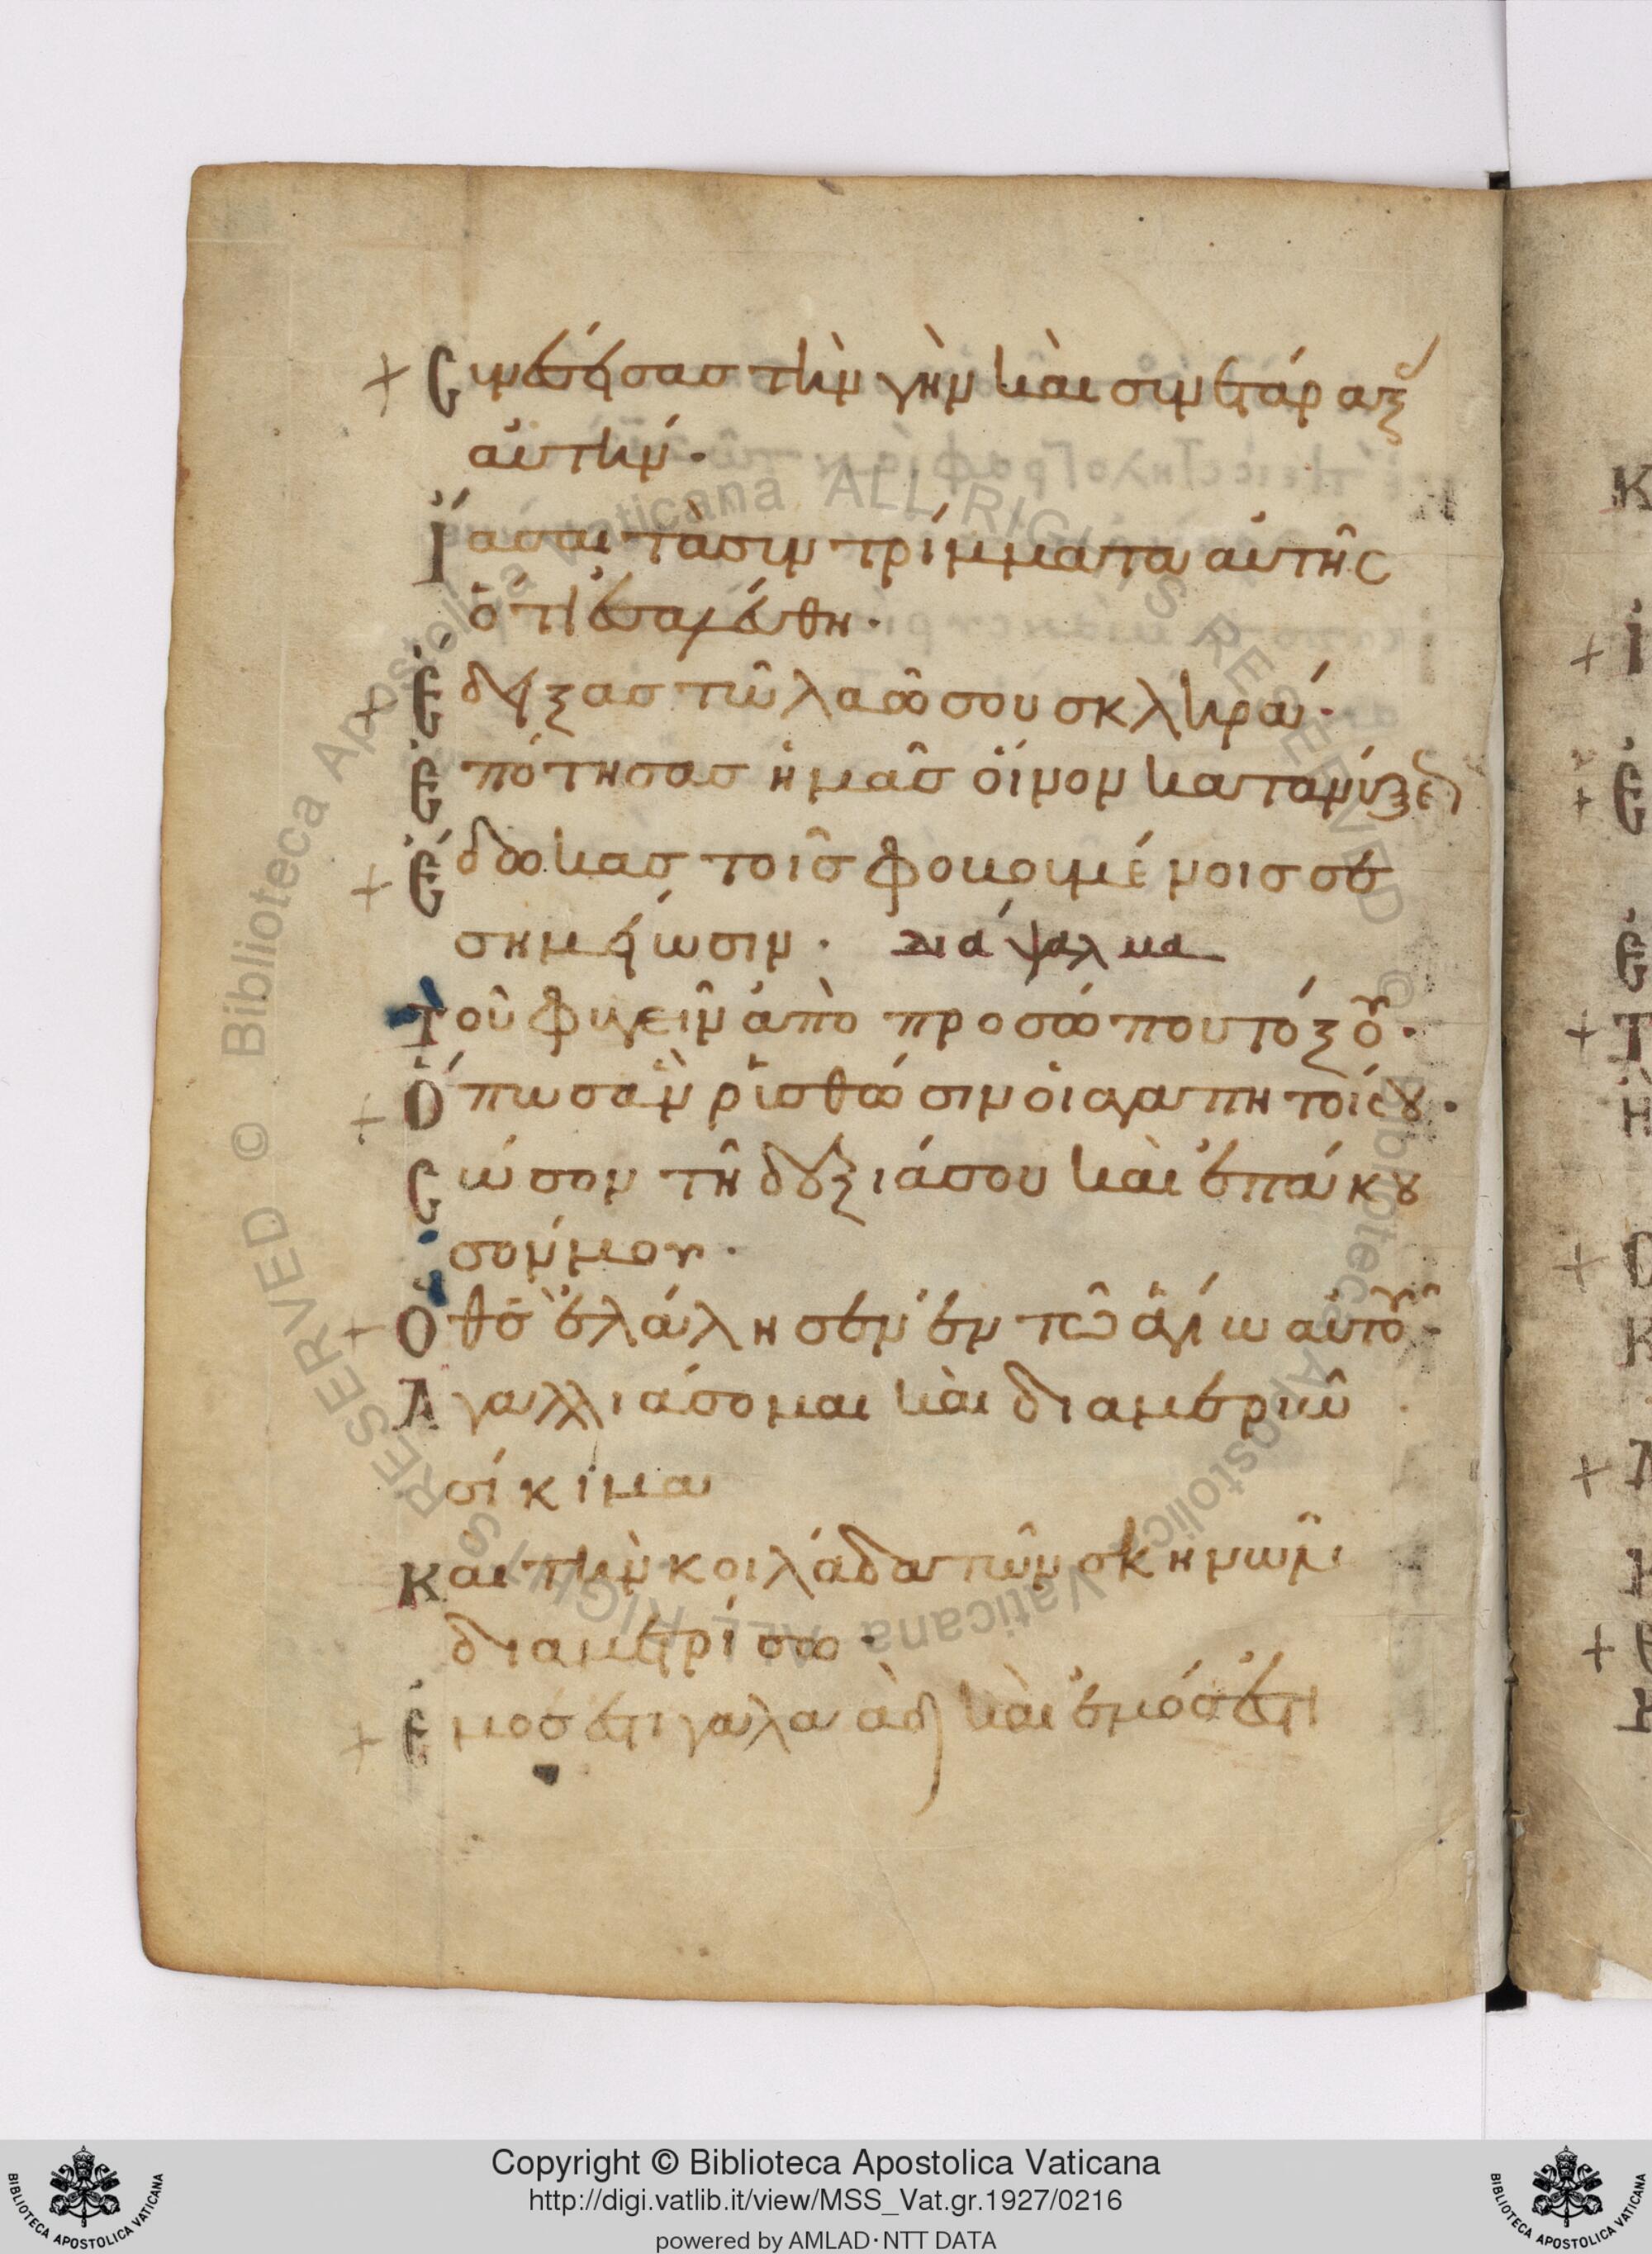 + Συνέσησας τὴν γὴν καὶ συνετάραξ
αὐτήν.
Ϊ́ασαι τὰ συντρίμματα αὐτῆς
ὅτι ἐσαλέυθη.
+ Ἔδειξας τῶ λαῶ σου σκληρά.
Ἐπότησας ἡμᾶς οἴνον κατανύξε
+ Ἔδωκας τοῖς φοβουμένοις σε
σημείωσιν. διάψαλμα
Τοῦ φυγεῖν ἀπὸ προσώπου τόξου.
+ Ὅπως ἂν ῥυσθώσιν οἱ ἀγαπητοί σου.
Σώσον τῆ δεξιά σου καὶ ἐπάκου
σούν μου.
+ Ὁ θς ἐλάλησεν ἐν τῶ ἁγίω αὐτοῦ
Ἀγαλλιάσομαι καὶ διαμεριῶ
σίκιμα
Και τὴν κοιλάδα τῶν σκηνῶν
διαμετρίσω.
+ Ἐμός ἐστι γαλαὰδ καὶ ἐμός ἐστι
Copyright © Biblioteca Apostolica Vaticana
http://digi.vatlib.it/view/MSS_Vat.gr.1927/0216
powered by AMLAD·NTT DATA